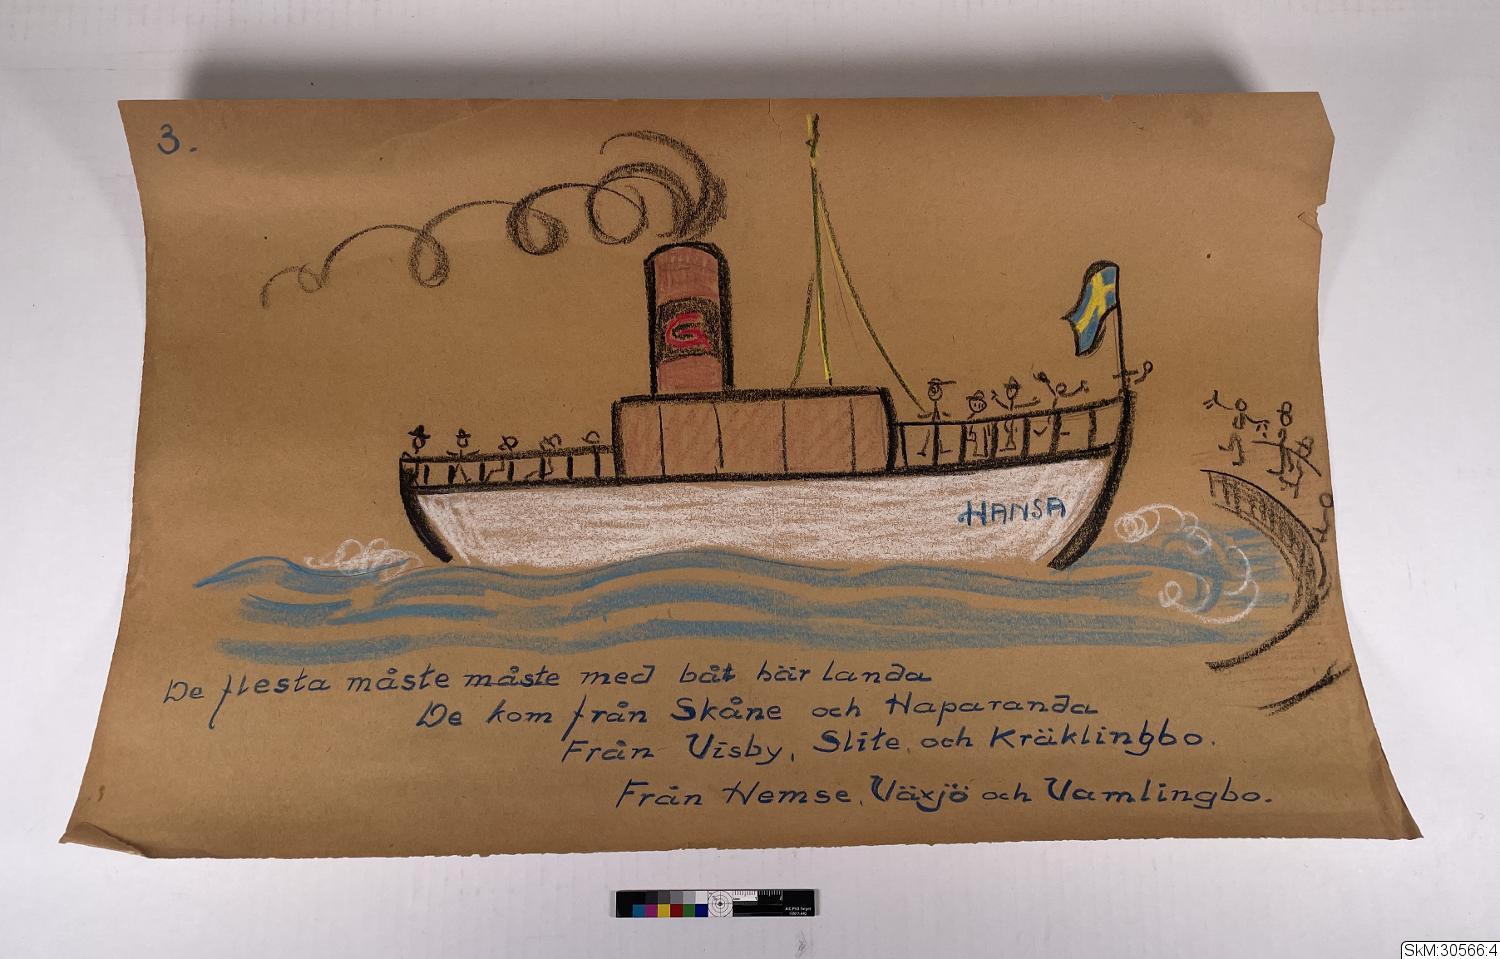 3.
G
HANSA
De flesta måste måste med båt här landa
De kom från Skåne och Haparanda
Från Visby, Slite, och Kräklingbo.
Från Hemse, Växjö och Vamlingbo.
SkM:30566:4